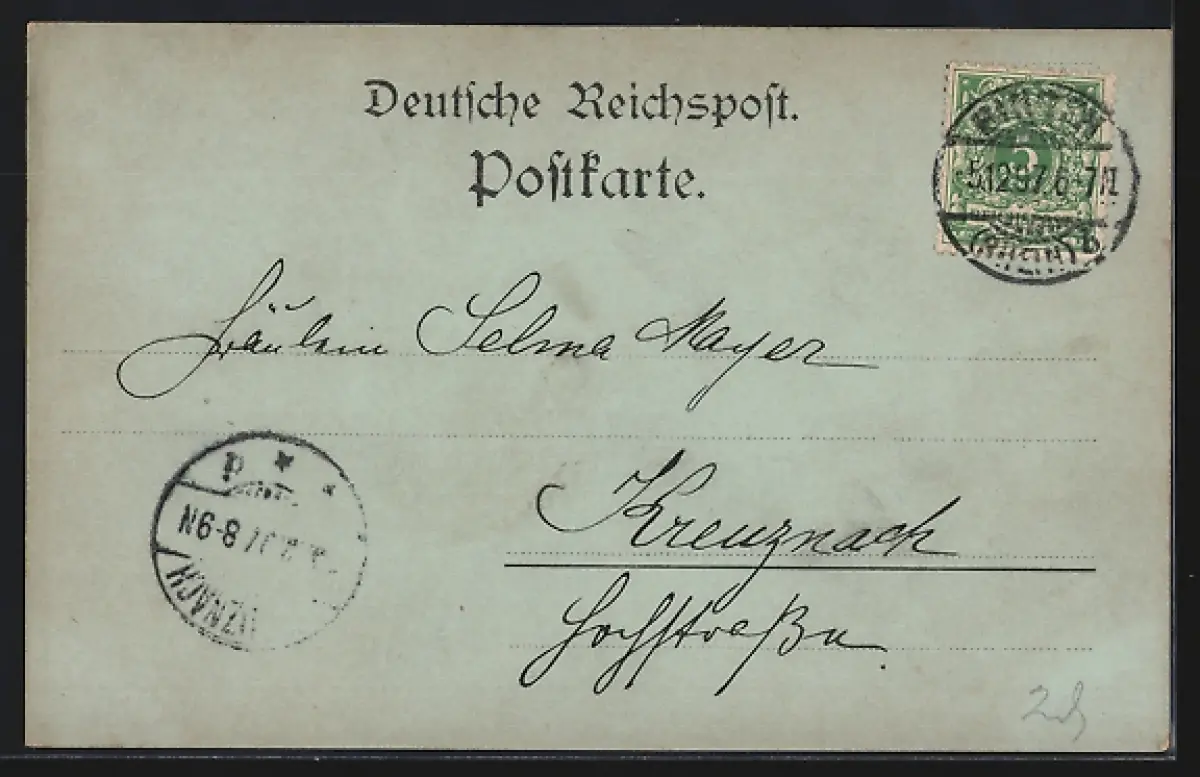 Deutsche Reichspost.
Postkarte.
BINGEN
5.12.97.6-7N
(RHEIN) b
5
Fräulein Selma Mayer
Kreuznach
Hochstraße
8-9N